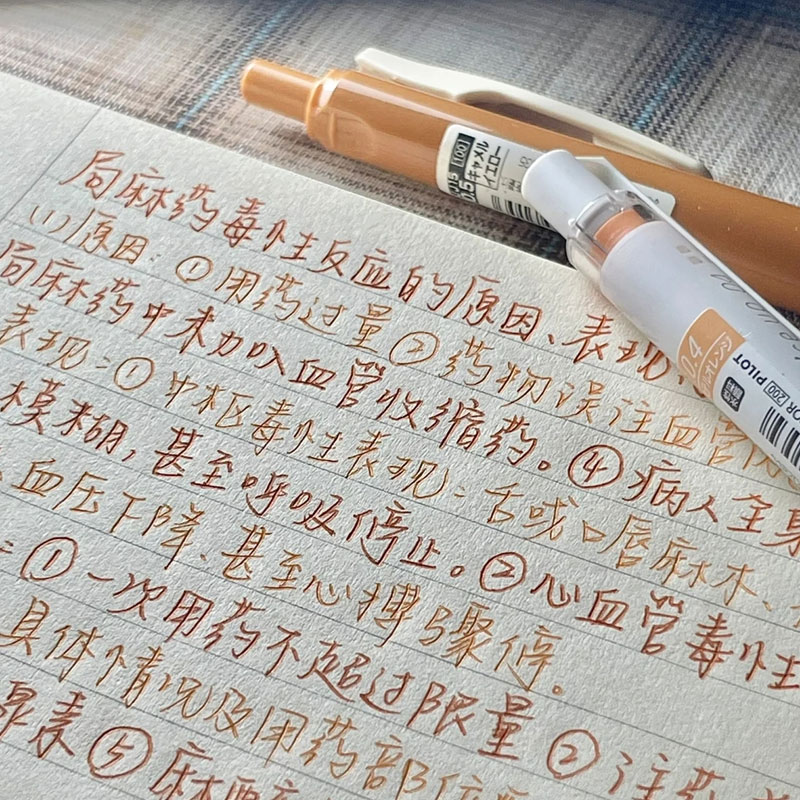 局麻药毒性反应的原因、表现
(1)原因: ①用药过量②药物误注血管内
局麻药中未加入血管收缩药。④病人全身
表现:①中枢毒性表现:舌或口唇麻木、
模糊,甚至呼吸停止。②心血管毒性
、血压下降、甚至心搏骤停。
:①一次用药不超过限量②注药
具体情况及用药部位
素⑤麻醉
[100]
0.5 キャメル
イエロー
0.4
オレンジ
200 PILOT